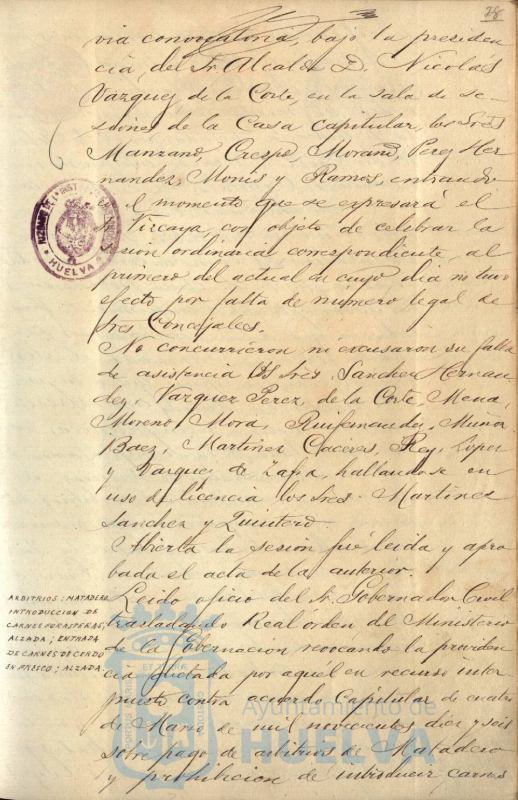 28
via convocatoria, bajo la presiden
cia, del Sr. Alcalde D. Nicolás
Vazquez de la Corte, en la sala de se-
siones de la Casa capitular, los Sres
Manzano, Crespo, Morano, Perez Her
nandez, Monis y Ramos, entrando
en el momento que se expresará el
Sr. Vizcaya, con objeto de celebrar la
sesion ordinaria correspondiente, al
primero del actual en cuyo dia no tuvo
efecto por falta de numero legal de
Sres Concejales.
No concurrieron ni excusaron su falta
de asistencia los Sres. Sanchez Hernan
dez, Vazquez Perez, de la Corte Mena,
Moreno Mora, Ruifernandez, Muñoz
Baez, Martinez Caceres, Rey, Lopez
y Vazquez de Zafra, hallandose en
uso de licencia los Sres. Martinez
Sanchez y Quintero.
Abierta la sesion fué leida y apro
bada el acta de la anterior.
ARBITRIOS: MATADERO
INTRODUCCION DE
CARNES FORASTERAS,
ALZADA; ENTRADA
DE CARNES DE CERDO
EN FRESCO; ALZADA.
Leido oficio del Sr. Gobernador Civil
trasladando Real orden del Ministerio
de la Gobernacion revocando la providen
cia dictada por aquél en recurso inter-
puesto contra acuerdo Capitular de cuatro
de Mario de mil novecientos diez y seis
sobre pago de arbitrios de Matadero
y prohibicion de introducir carnes
HUELVA
Ayuntamiento de
HUELVA